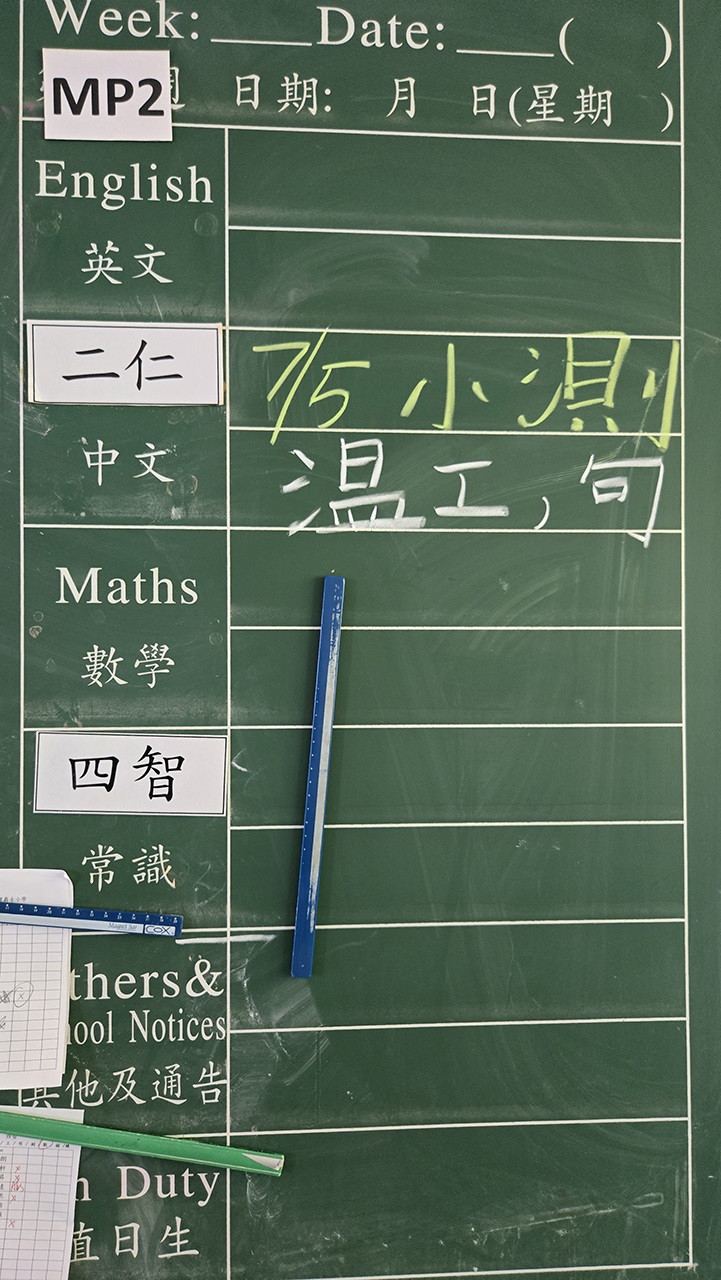 Week: ____ Date: ____ ( )
MP2 週 日期: 月 日(星期 )
English
英文
二仁 7/5 小測
中文 温工,句
Maths
數學
四智
常識
Magnet bar COX
thers&
hool Notices
其他及通告
n Duty
值日生